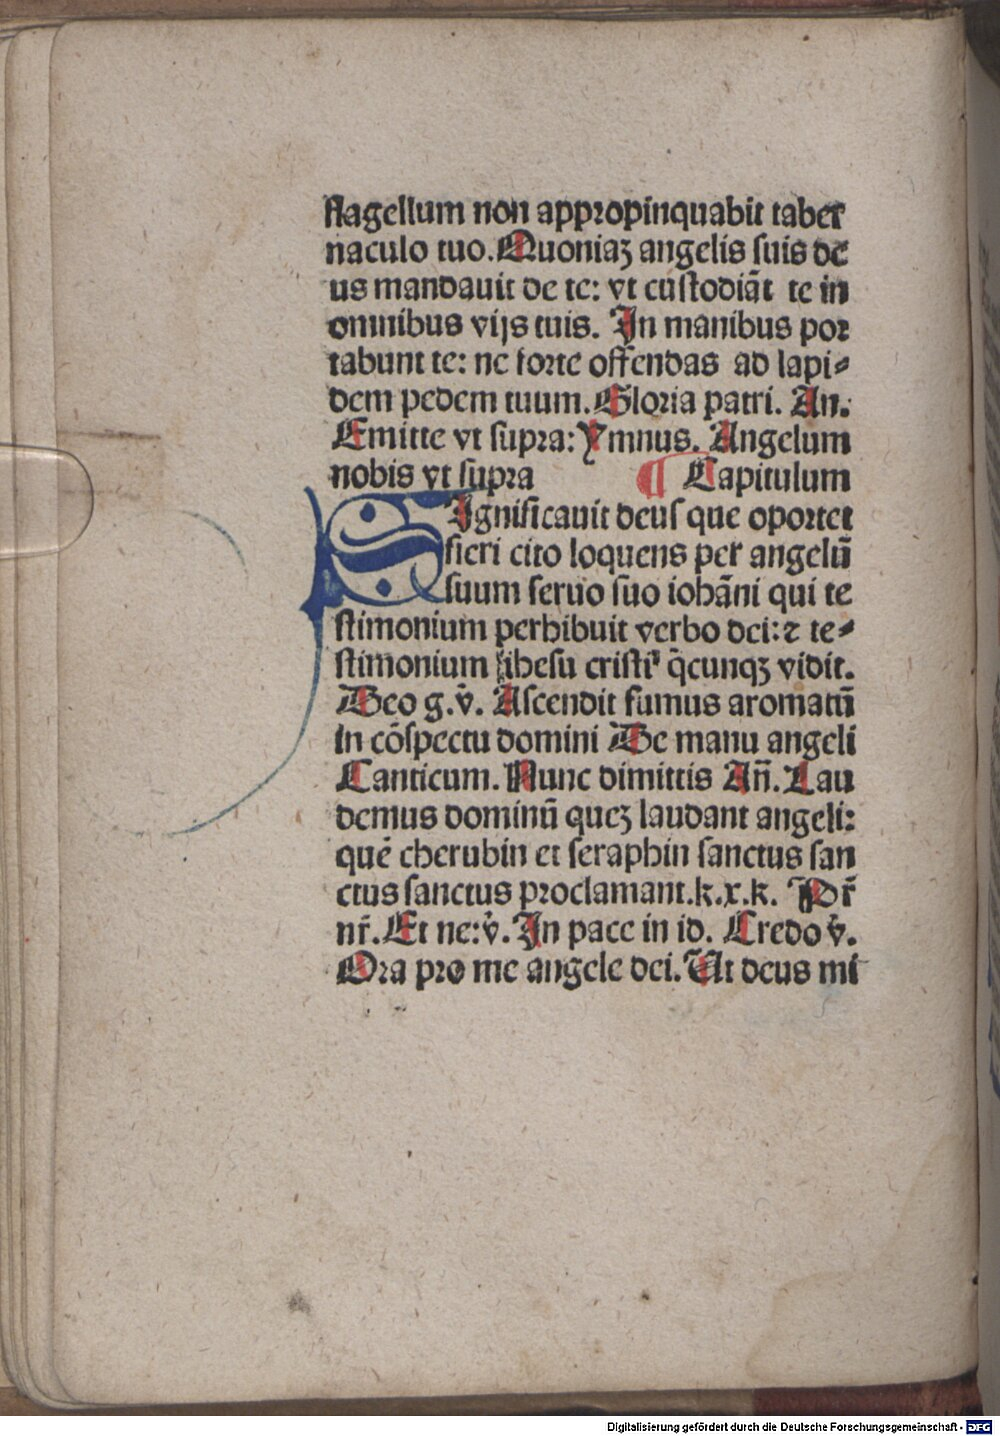 flagellum non appropinquabit taber
naculo tuo. Quoniaʒ angelis suis de
us mandauit de te: vt custodiāt te in
omnibus vijs tuis. In manibus por
tabunt te: ne forte offendas ad lapi⸗
dem pedem tuum. Gloria patri. An.
Emitte vt supra: Ymnus. Angelum
nobis vt supra ¶ Capitulum
SIgnificauit deus que oportet
fieri cito loquens per angelū
suum seruo suo iohāni qui te
stimonium perhibuit verbo dei: ⁊ te⸗
stimonium ihesu cristi q̄cunqʒ vidit.
Deo g. v̄. Ascendit fumus aromatū
in cōspectu domini De manu angeli
Canticum. Nunc dimittis An̄. Lau
demus dominū queʒ laudant angeli:
quē cherubin et seraphin sanctus san
ctus sanctus proclamant. k. x. k. Pr̄
nr̄. Et ne: v̄. In pace in id. Credo v̄.
Ora pro me angele dei. Ut deus mi
Digitalisierung gefördert durch die Deutsche Forschungsgemeinschaft - DFG